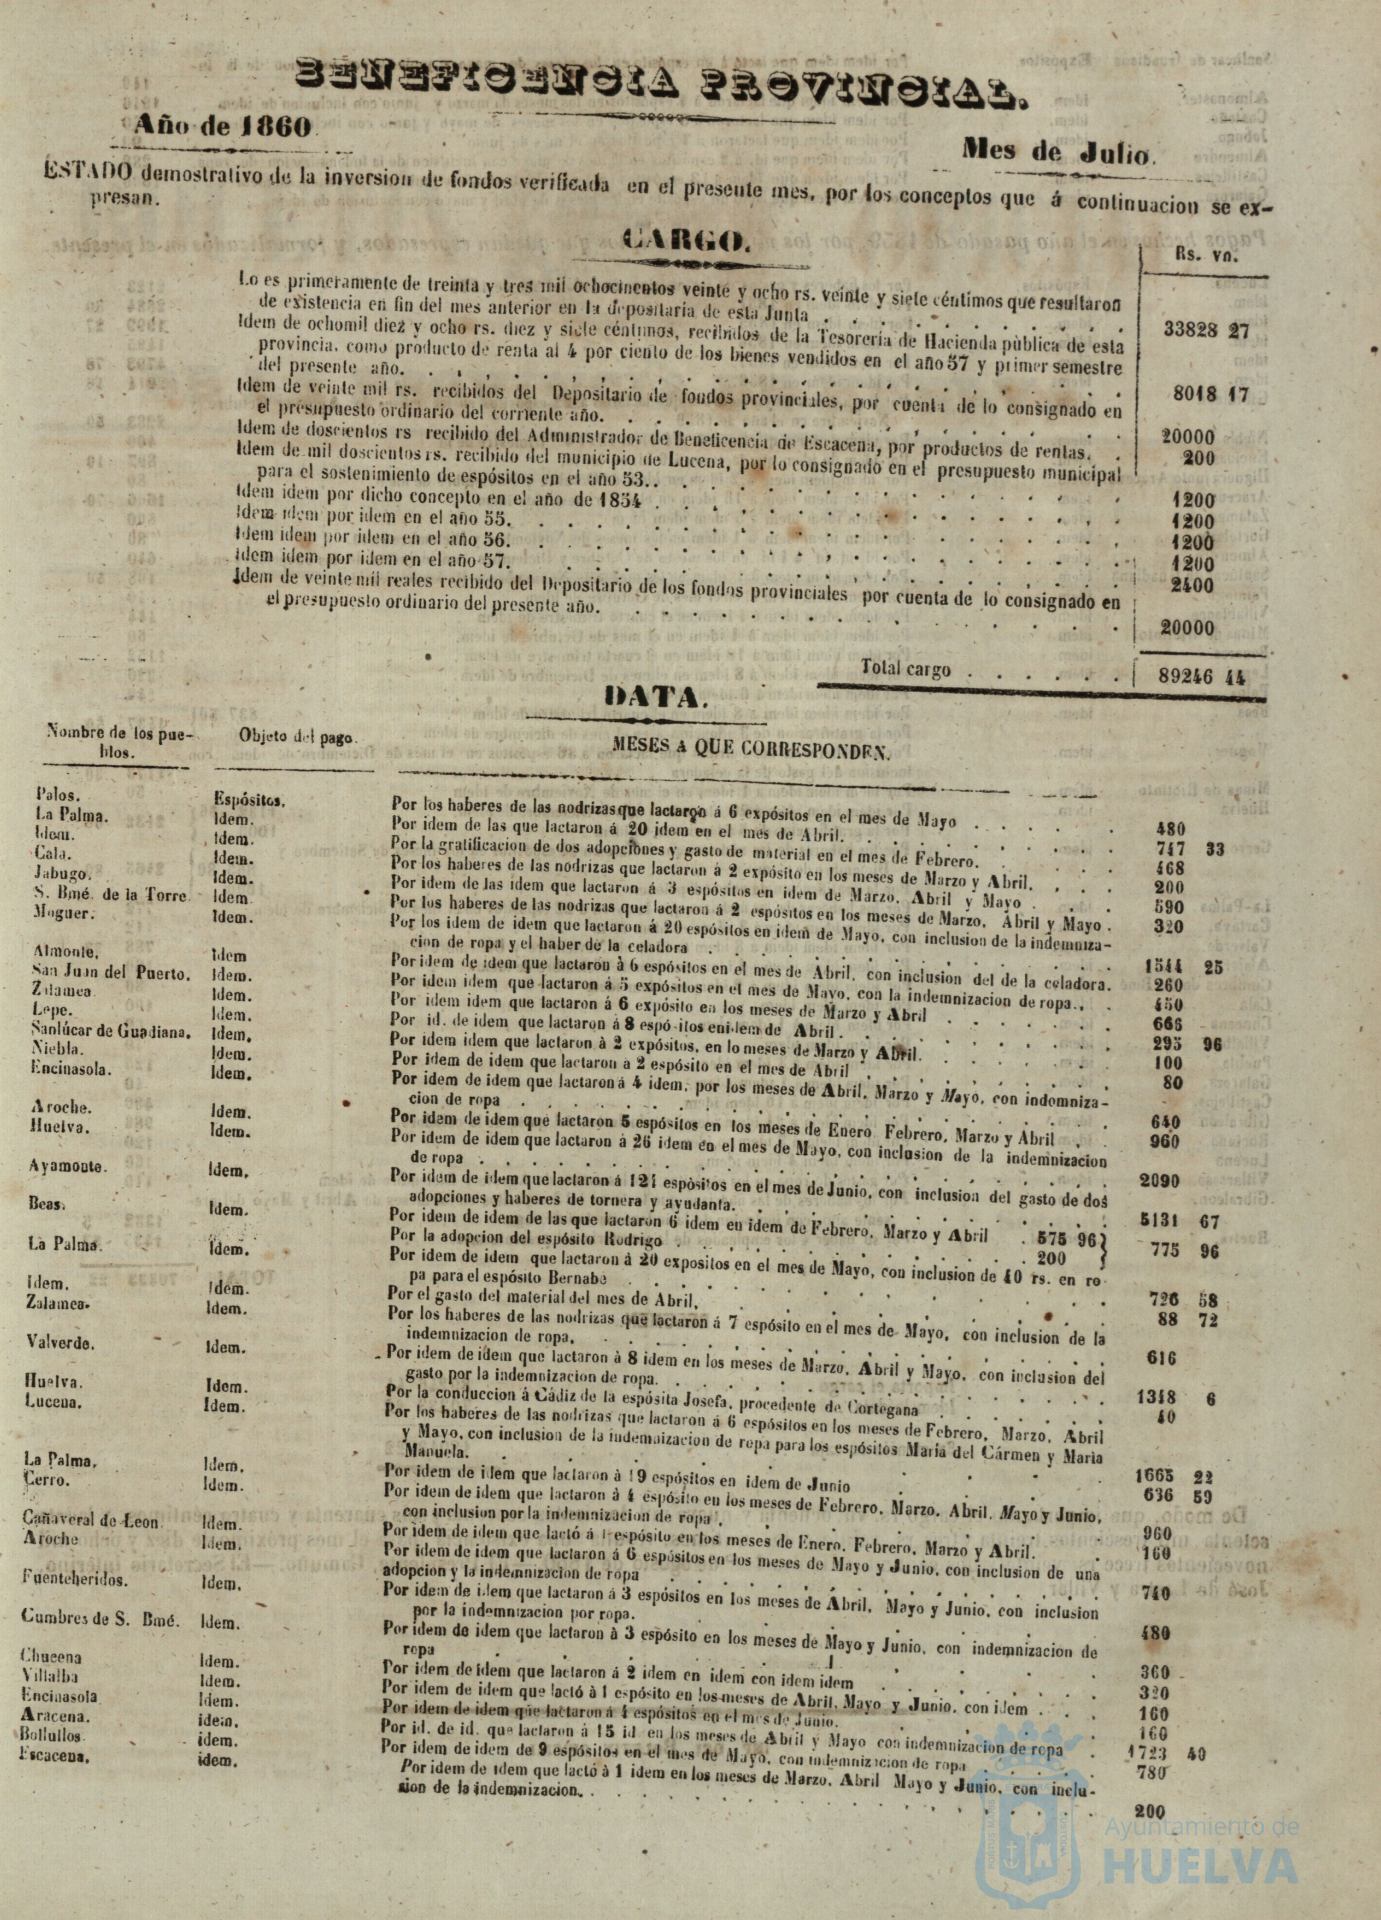 BENEFICENCIA PROVINCIAL.
Año de 1860
Mes de Julio.
ESTADO demostrativo de la inversion de fondos verificada en el presente mes, por los conceptos que á continuacion se ex-
presan.
CARGO.
Rs. vn.
Lo es primeramente de treinta y tres mil ochocinentos veinte y ocho rs. veinte y siete céntimos que resultaron
de existencia en fin del mes anterior en la depositaria de esta Junta . . . 33828 27
Idem de ochomil diez y ocho rs. diez y siete céntimos, recibidos de la Tesorería de Hacienda pública de esta
provincia, como producto de renta al 4 por ciento de los bienes vendidos en el año 57 y primer semestre
del presente año. . . . 8018 17
Idem de veinte mil rs. recibidos del Depositario de fondos provinciales, por cuenta de lo consignado en
el presupuesto ordinario del corriente año. . . . 20000
Idem de doscientos rs recibido del Administrador de Beneficencia de Escacena, por productos de rentas. . 200
Idem de mil doscientos rs. recibido del municipio de Lucena, por lo consignado en el presupuesto municipal
para el sostenimiento de espósitos en el año 53. . . . 1200
Idem idem por dicho concepto en el año de 1854 . . . 1200
Idem idem por idem en el año 55. . . . 1200
Idem idem por idem en el año 56. . . . 1200
Idem idem por idem en el año 57. . . . 2400
Idem de veinte mil reales recibido del Depositario de los fondos provinciales por cuenta de lo consignado en
el presupuesto ordinario del presente año. . . . 20000
Total cargo . . . . . . 89246 44
DATA.
Nombre de los pue-
blos.
Objeto del pago.
MESES A QUE CORRESPONDEN.
Palos. Espósitos. Por los haberes de las nodrizas que lactaron á 6 expósitos en el mes de Mayo . . . 480
La Palma. Idem. Por idem de las que lactaron á 20 idem en el mes de Abril. . . . 747 33
Idem. Idem. Por la gratificacion de dos adopciones y gasto de material en el mes de Febrero. . . . 468
Cala. Idem. Por los haberes de las nodrizas que lactaron á 2 expósitos en los meses de Marzo y Abril. . . . 200
Jabugo. Idem. Por idem de las idem que lactaron á 3 espósitos en idem de Marzo, Abril y Mayo . . . 590
S. Bmé. de la Torre Idem Por los haberes de las nodrizas que lactaron á 2 espósitos en los meses de Marzo, Abril y Mayo . 320
Moguer. Idem. Por los idem de idem que lactaron á 20 espósitos en idem de Mayo, con inclusion de la indemniza-
cion de ropa y el haber de la celadora . . . 1544 25
Almonte. Idem Por idem de idem que lactaron à 6 espósitos en el mes de Abril, con inclusion del de la celadora. 260
San Juan del Puerto. Idem. Por idem idem que lactaron á 5 expósitos en el mes de Mayo, con la indemnizacion de ropa. . . 450
Zalamea Idem. Por idem idem que lactaron á 6 expósito en los meses de Marzo y Abril . . . 665
Lepe. Idem. Por id. de idem que lactaron á 8 espósitos en idem de Abril. . . . 295 96
Sanlúcar de Guadiana. Idem. Por idem idem que lactaron à 2 expósitos, en lo meses de Marzo y Abril. . . . 100
Niebla. Idem. Por idem de idem que lactaron a 2 espósito en el mes de Abril . . . 80
Encinasola. Idem. Por idem de idem que lactaron á 4 idem, por los meses de Abril, Marzo y Mayo, con indemniza-
cion de ropa . . . 640
Aroche. Idem. Por idem de idem que lactaron 5 espósitos en los meses de Enero Febrero, Marzo y Abril . . 960
Huelva. Idem. Por idem de idem que lactaron á 26 idem en el mes de Mayo, con inclusion de la indemnizacion
de ropa . . . 2090
Ayamonte. Idem. Por idem de idem que lactaron á 121 espósitos en el mes de Junio, con inclusion del gasto de dos
adopciones y haberes de tornera y ayudanta. . . . 5131 67
Beas. Idem. Por idem de idem de las que lactaron 6 idem en idem de Febrero, Marzo y Abril . 575 96
Por la adopcion del espósito Rodrigo . . . 200 } 775 96
La Palma. Idem. Por idem de idem que lactaron á 20 expositos en el mes de Mayo, con inclusion de 40 rs. en ro
pa para el espósito Bernabe . . . 726 58
Idem. Idem. Por el gasto del material del mes de Abril. . . . 88 72
Zalamea. Idem. Por los haberes de las nodrizas que lactaron á 7 espósito en el mes de Mayo, con inclusion de la
indemnizacion de ropa. . . . 616
Valverde. Idem. Por idem de idem que lactaron à 8 idem en los meses de Marzo, Abril y Mayo, con inclusion del
gasto por la indemnizacion de ropa. . . . 1318 6
Huelva. Idem. Por la conduccion á Cádiz de la espósita Josefa, procedente de Cortegana . . . 40
Lucena. Idem. Por los haberes de las nodrizas que lactaron á 6 espósitos en los meses de Febrero, Marzo, Abril
y Mayo, con inclusion de la indemnizacion de ropa para los espósitos Maria del Cármen y Maria
Manuela. . . . 1665 22
La Palma. Idem. Por idem de idem que lactaron à 19 espósitos en idem de Junio . . . 636 59
Cerro. Idem. Por idem de idem que lactaron à 4 espósito en los meses de Febrero, Marzo, Abril, Mayo y Junio,
con inclusion por la indemnizacion de ropa . . . 960
Cañaveral de Leon Idem. Por idem de idem que lactó á 1 espósito en los meses de Enero, Febrero, Marzo y Abril. . 160
Aroche Idem. Por idem de idem que lactaron á 6 espósitos en los meses de Mayo y Junio, con inclusion de una
adopcion y la indemnizacion de ropa . . . 740
Fuenteheridos. Idem. Por idem de idem que lactaron á 3 espósitos en los meses de Abril, Mayo y Junio, con inclusion
por la indemnizacion por ropa. . . . 480
Cumbres de S. Bmé. Idem. Por idem de idem que lactaron à 3 espósito en los meses de Mayo y Junio, con indemnizacion de
ropa . . . 360
Chucena Idem. Por idem de idem que lactaron á 2 idem en idem con idem idem . . . 320
Villalba Idem. Por idem de idem que lactó à 1 espósito en los meses de Abril, Mayo y Junio, con idem . . . 160
Encinasola Idem. Por idem de idem que lactaron á 4 espósitos en el mes de Junio. . . . 160
Aracena. idem. Por id. de id. que lactaron á 15 id en los meses de Abril y Mayo con indemnizacion de ropa . 1723 40
Bollullos. idem. Por idem de idem de 9 espósitos en el mes de Mayo, con indemnizacion de ropa . . . 780
Escacena. idem. Por idem de idem que lactó à 1 idem en los meses de Marzo, Abril Mayo y Junio, con inclu-
sion de la indemnizacion. . . . 200
Ayuntamiento de
HUELVA